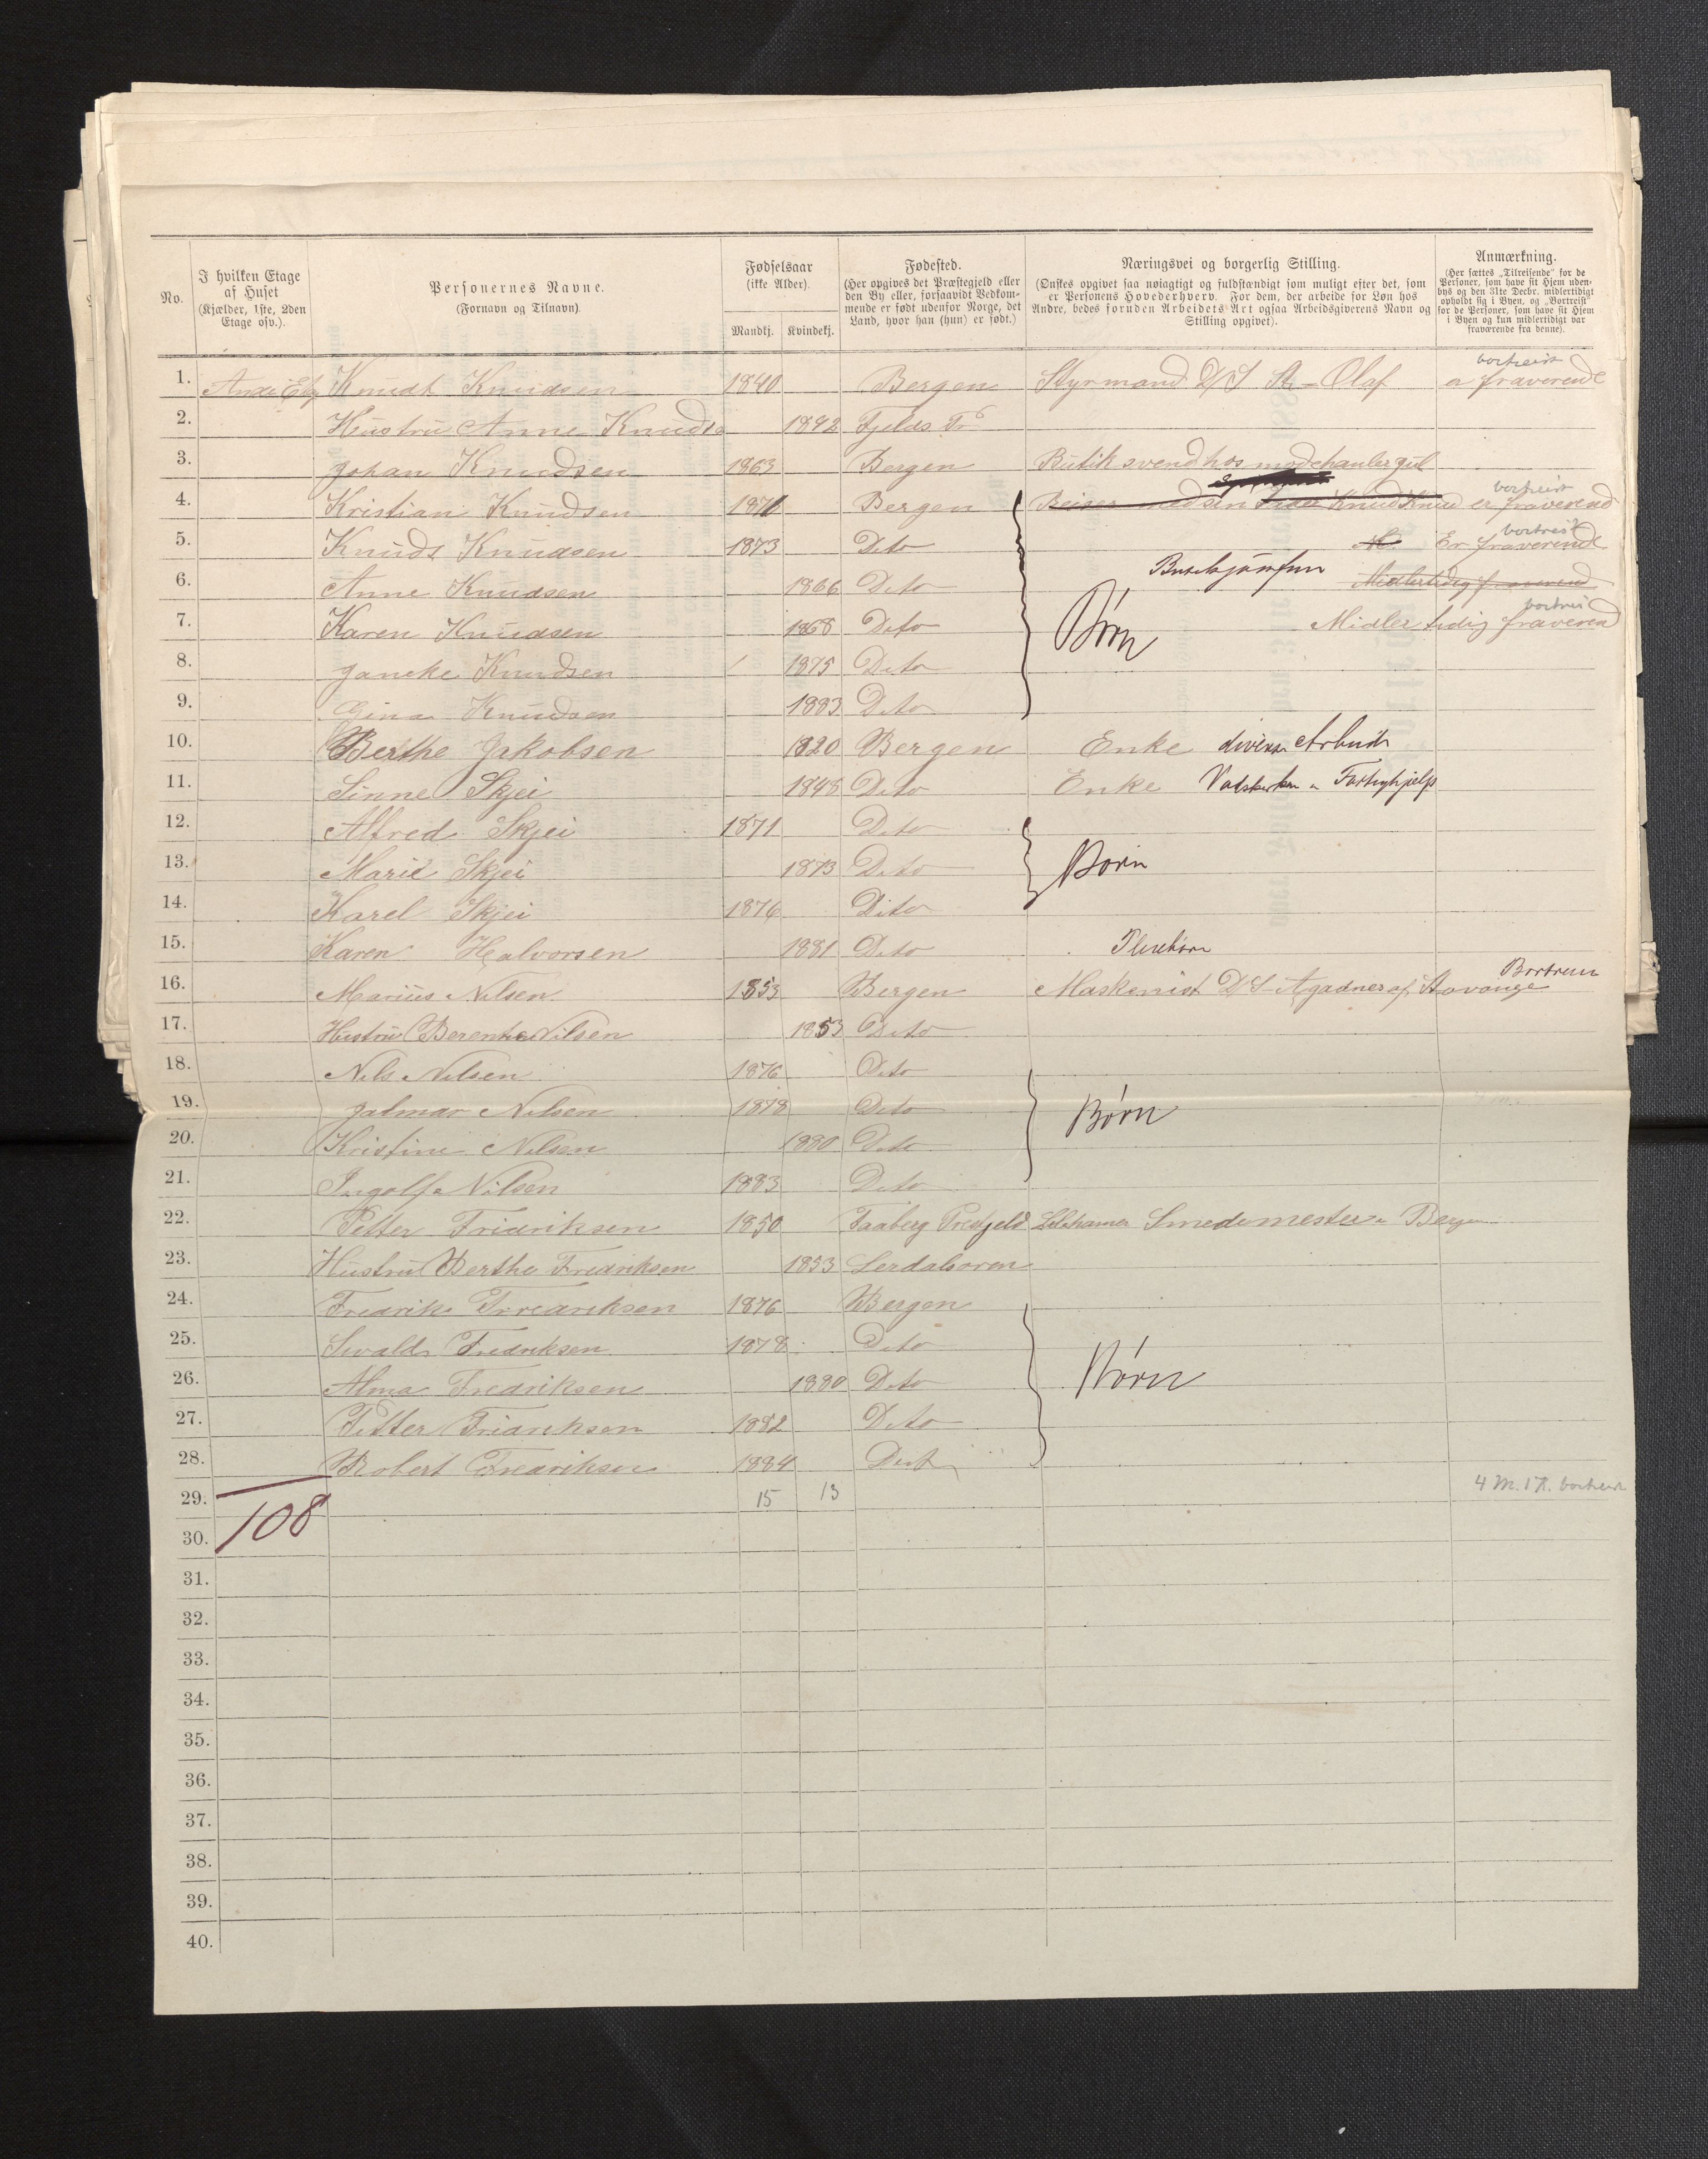 No.
I hvilken Etage af Huset
(Kjælder, 1ste, 2den Etage osv.).
Personernes Navne.
(Fornavn og Tilnavn)
Fødselsaar
(ikke Alder).
Mandkj. Kvindekj.
Fødested.
(Her opgives det Præstegjeld eller
den By eller, forsaavidt Vedkom-
mende er født udenfor Norge, det
Land, hvor han (hun) er født.)
Næringsvei og borgerlig Stilling.
(Ønskes opgivet saa nøiagtigt og fuldstændigt som muligt efter det, som
er Personens Hovederhverv. For dem, der arbeide for Løn hos
Andre, bedes foruden Arbeidets Art ogsaa Arbeidsgiverens Navn og
Stilling opgivet).
Anmærkning.
(Her sættes „Tilreisende“ for de
Personer, som have sit Hjem uden-
bys og den 31te Decbr. midlertidigt
opholdt sig i Byen, og „Bortreist“
for de Personer, som have sit Hjem
i Byen og kun midlertidigt var
fraværende fra denne).
bortreist
1. Knudt Knudsen 1840 Bergen Styrmand D/S St-Olaf fraverende
2. Hustru Anne Knuds 1842 Fjelds
3. Johan Knudsen 1863 Bergen Butiksvend hos
bortreist
4. Kristian Knudsen 1871 Bergen Reiser med sin Knud er fraverend
bortreist
5. Knuds Knudsen 1873 Dito Er fraverende
6. Anne Knudsen 1866 Dito Midlertidig fraverend
bortreist
7. Karen Knudsen 1868 Dito Børn Midlertidig fraverend
8. Jancke Knudsen 1875 Dito
9. Gina Knudsen 1883 Dito
10. Berthe Jakobsen 1820 Bergen Enke diverse Arbeide
11. Sinne Skjei 1848 Dito Enke
12. Alfred Skjei 1871 Dito
13. Marie Skjei 1873 Dito Børn
14. Karel Skjei 1876 Dito
15. Karen Halvorsen 1881 Dito Pleiebarn
Bortreist
16. Marius Nilsen 1853 Bergen Maskenist D/S Stavange
17. Hustru Berenthe Nilsen 1853 Dito
18. Nils Nilsen 1876 Dito
19. Jalmar Nilsen 1878 Dito Børn
20. Kristine Nilsen 1880 Dito
21. Ingolf Nilsen 1883 Dito
22. Petter Fridriksen 1850 Faaberg Prestjeld Lilehamer Smedemester Bergen
23. Hustru Berthe Fredriksen 1853 Lerdalsoren
24. Fredrik Fredriksen 1876 Bergen
25. Sivald Fredriksen 1878 Dito
26. Alma Fredriksen 1880 Dito Børn
27. Petter Fridriksen 1882 Dito
28. Robert Fredriksen 1884 Dito
29. 15 13 4 M. 1 K. bortreist
108
30.
31.
32.
33.
34.
35.
36.
37.
38.
39.
40.